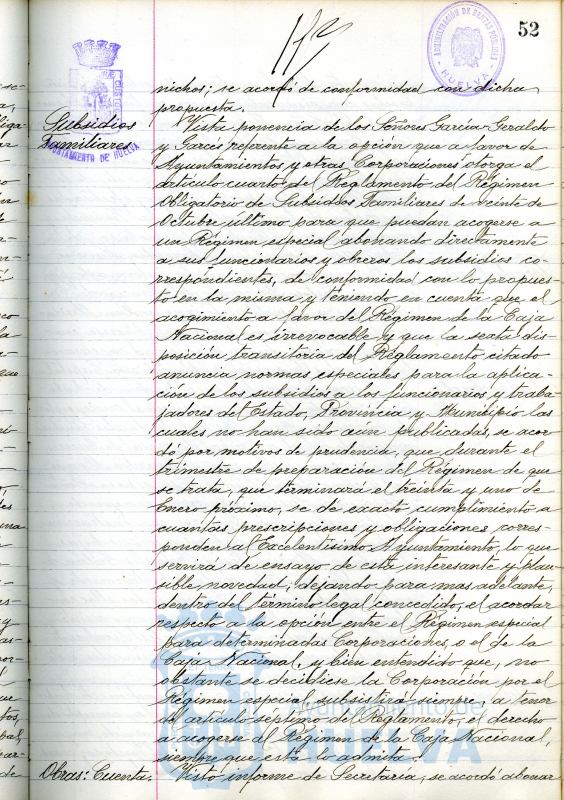 52
ADMINISTRACIÓN DE RENTAS PÚBLICAS
HUELVA
AYUNTAMIENTO DE HUELVA
nichos; se acordó de conformidad con dicha
propuesta.
Subsidios
Familiares
Vista ponencia de los Señores García-Geraldo
y Garcés referente a la opción que a favor de
Ayuntamientos y otras Corporaciones otorga el
artículo cuarto del Reglamento del Régimen
Obligatorio de Subsidios Familiares de veinte de
Octubre último para que puedan acogerse a
un Régimen especial abonando directamente
a sus funcionarios y obreros los subsidios co-
rrespondientes, de conformidad con lo propues-
to en la misma y teniendo en cuenta que el
acogimiento a favor del Régimen de la Caja
Nacional es irrevocable y que la sexta dis-
posición transitoria del Reglamento citado
anuncia normas especiales para la aplica-
ción de los subsidios a los funcionarios y traba-
jadores del Estado, Provincia y Municipio las
cuales no han sido aún publicadas, se acor-
dó por motivos de prudencia, que durante el
trimestre de preparación del Régimen de que
se trata, que terminará el treinta y uno de
Enero próximo, se de exacto cumplimiento a
cuantas prescripciones y obligaciones corres-
ponden al Excelentísimo Ayuntamiento, lo que
servirá de ensayo de esta interesante y plau-
sible novedad; dejando para mas adelante,
dentro del término legal concedido, el acordar
respecto a la opción entre el Régimen especial
para determinadas Corporaciones, o el de la
Caja Nacional, y bien entendido que, no
obstante se decidiese la Corporación por el
Régimen especial subsistirá siempre, a tenor
del artículo septimo del Reglamento, el derecho
a acogerse al Régimen de la Caja Nacional,
siempre que esta lo admita.
Ayuntamiento de
HUELVA
Obras: Cuenta.
Visto informe de Secretaría, se acordó abonar